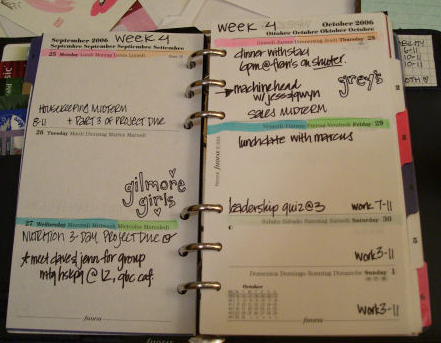 September 2006 WEEK 4
Septembre September Septiembre Settembre
25 Monday Lundi Montag Lunes Lunedì
HOUSEKEEPING MIDTERM
8-11 + PART 3 OF PROJECT DUE
26 Tuesday Mardi Dienstag Martes Martedì
gilmore
girls
27 Wednesday Mercredi Mittwoch Miércoles Mercoledì
NUTRITION 3-DAY PROJECT DUE
★ meet dave & jenn for group
mtg hskpg @ 12, qbc caf.
filofax
WEEK 4 October 2006
Octobre Oktober Octubre Ottobre
Thursday 28
dinner with stag
6pm @ on shuter.
grey's
machinehead
w/ jess & gwyn
SALES MIDTERM
Friday 29
lunchdate with marcus
leadership quiz @ 3 work 7-11
Saturday 30
work 3-11
Domenica Domingo Sonntag Dimanche Sunday 1
October
work 3-11
filofax